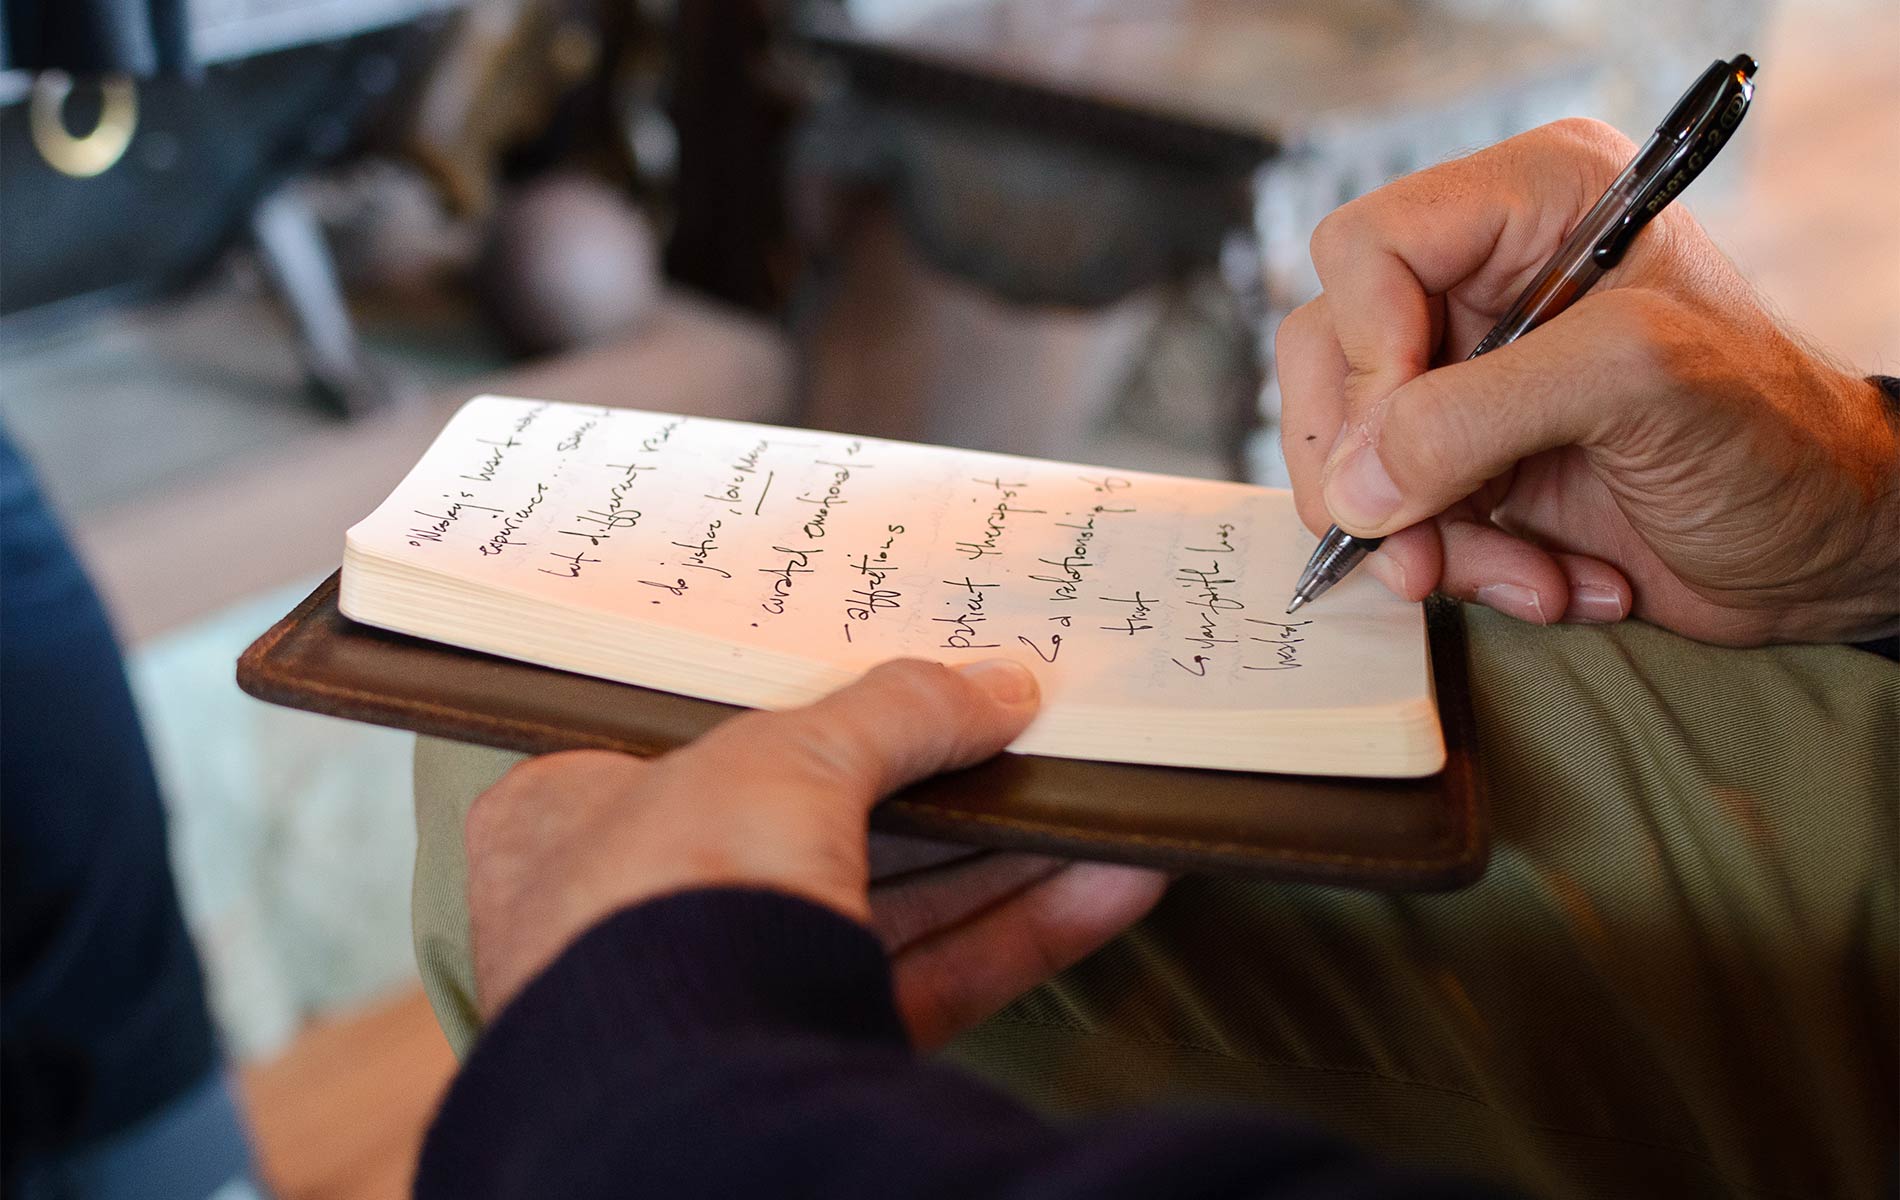 • Wesley's heart warm
experience... same
but different
• do justice, love Mercy
• curated emotional
- affections
patient therapist
↳ a relationship of
trust
↳ your faith has
healed
PILOT G-2 10